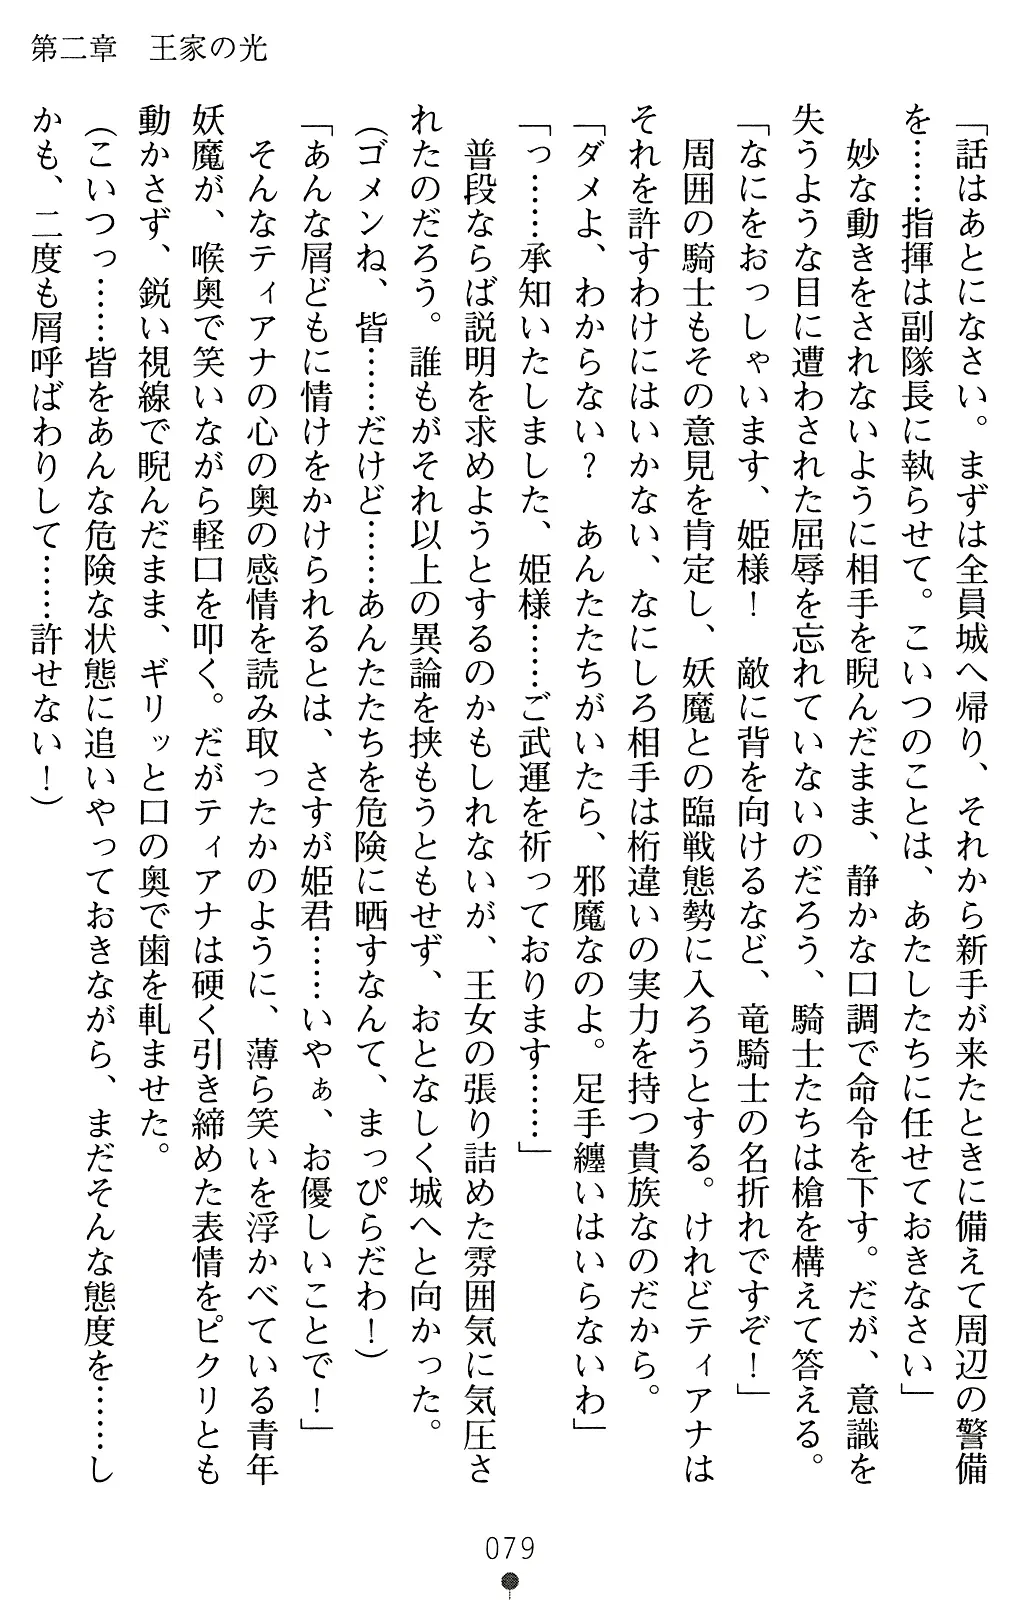 第二章　王家の光
「話はあとになさい。まずは全員城へ帰り、それから新手が来たときに備えて周辺の警備
を……指揮は副隊長に執らせて。こいつのことは、あたしたちに任せておきなさい」
　妙な動きをされないように相手を睨んだまま、静かな口調で命令を下す。だが、意識を
失うような目に遭わされた屈辱を忘れていないのだろう、騎士たちは槍を構えて答える。
「なにをおっしゃいます、姫様！　敵に背を向けるなど、竜騎士の名折れですぞ！」
　周囲の騎士もその意見を肯定し、妖魔との臨戦態勢に入ろうとする。けれどティアナは
それを許すわけにはいかない、なにしろ相手は桁違いの実力を持つ貴族なのだから。
「ダメよ、わからない？　あんたたちがいたら、邪魔なのよ。足手纏いはいらないわ」
「っ……承知いたしました、姫様……ご武運を祈っております……」
　普段ならば説明を求めようとするのかもしれないが、王女の張り詰めた雰囲気に気圧さ
れたのだろう。誰もがそれ以上の異論を挟もうともせず、おとなしく城へと向かった。
（ゴメンね、皆……だけど……あんたたちを危険に晒すなんて、まっぴらだわ！）
「あんな屑どもに情けをかけられるとは、さすが姫君……いやぁ、お優しいことで！」
　そんなティアナの心の奥の感情を読み取ったかのように、薄ら笑いを浮かべている青年
妖魔が、喉奥で笑いながら軽口を叩く。だがティアナは硬く引き締めた表情をピクリとも
動かさず、鋭い視線で睨んだまま、ギリッと口の奥で歯を軋ませた。
（こいつっ……皆をあんな危険な状態に追いやっておきながら、まだそんな態度を……し
かも、二度も屑呼ばわりして……許せない！）
079